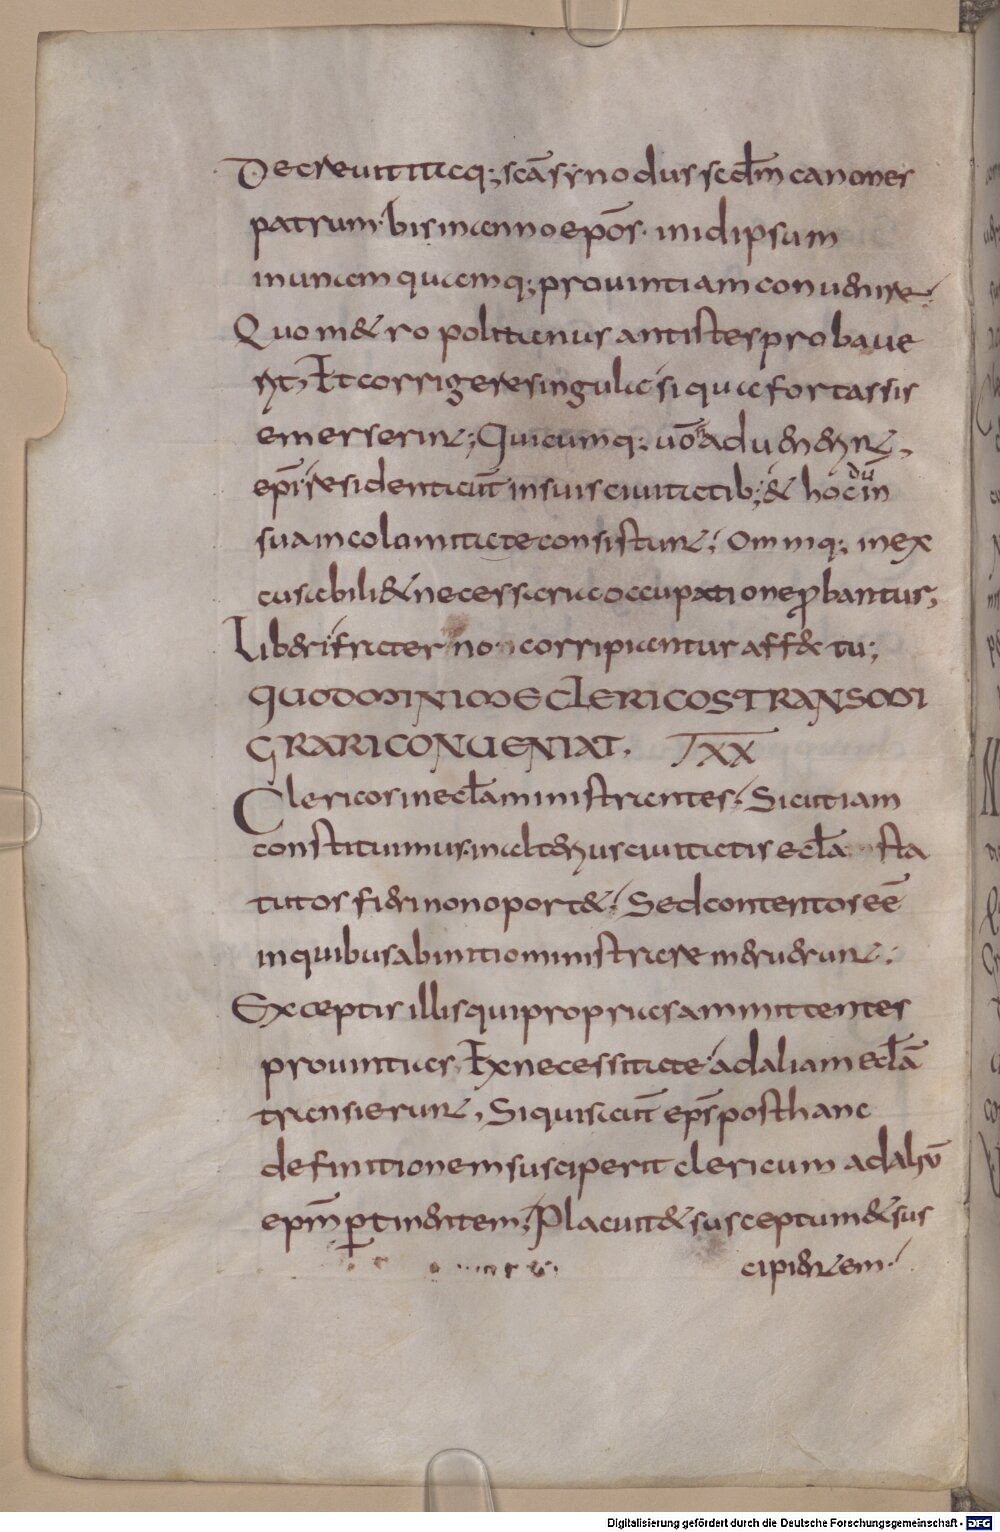 Decreuit itaq; scā synodus scdm canones
patrum· bis in anno epōs· in idipsum
in unam quamq; prouintiam conuenire·
Quo metropolitanus antistes probaue
rit, Et corrigere singula si quae fortassis
emerserint; Quicumq; uō n aduenerint,
epī residentes aūt in suis ciuitatib; & hoc dū in
sua incolomitate consistunt; Omniq; inex
cusabili & necessaria occupatione ꝓbantur,
Liberi frater no corripiantur affectu;
QUOD MINIME CLERICOS TRANSMI
GRARI CONUENIAT. XX
Clericos in eclā ministrantes; Sicut iam
constituimus· in alterius ciuitatis eclā sta
tutos fieri non oportet; Sed contentos eē
in quibus ab initio ministrare meruerunt;
Exceptis illis qui proprias ammittentes
prouintias, Ex necessitate ad aliam eclā
transierunt, Si quis aūt epīs post hanc
definitionem susciperit clericum ad aliū
epm ꝑtinentem, Placuit & susceptum & sus
cipientem·
Digitalisierung gefördert durch die Deutsche Forschungsgemeinschaft - DFG